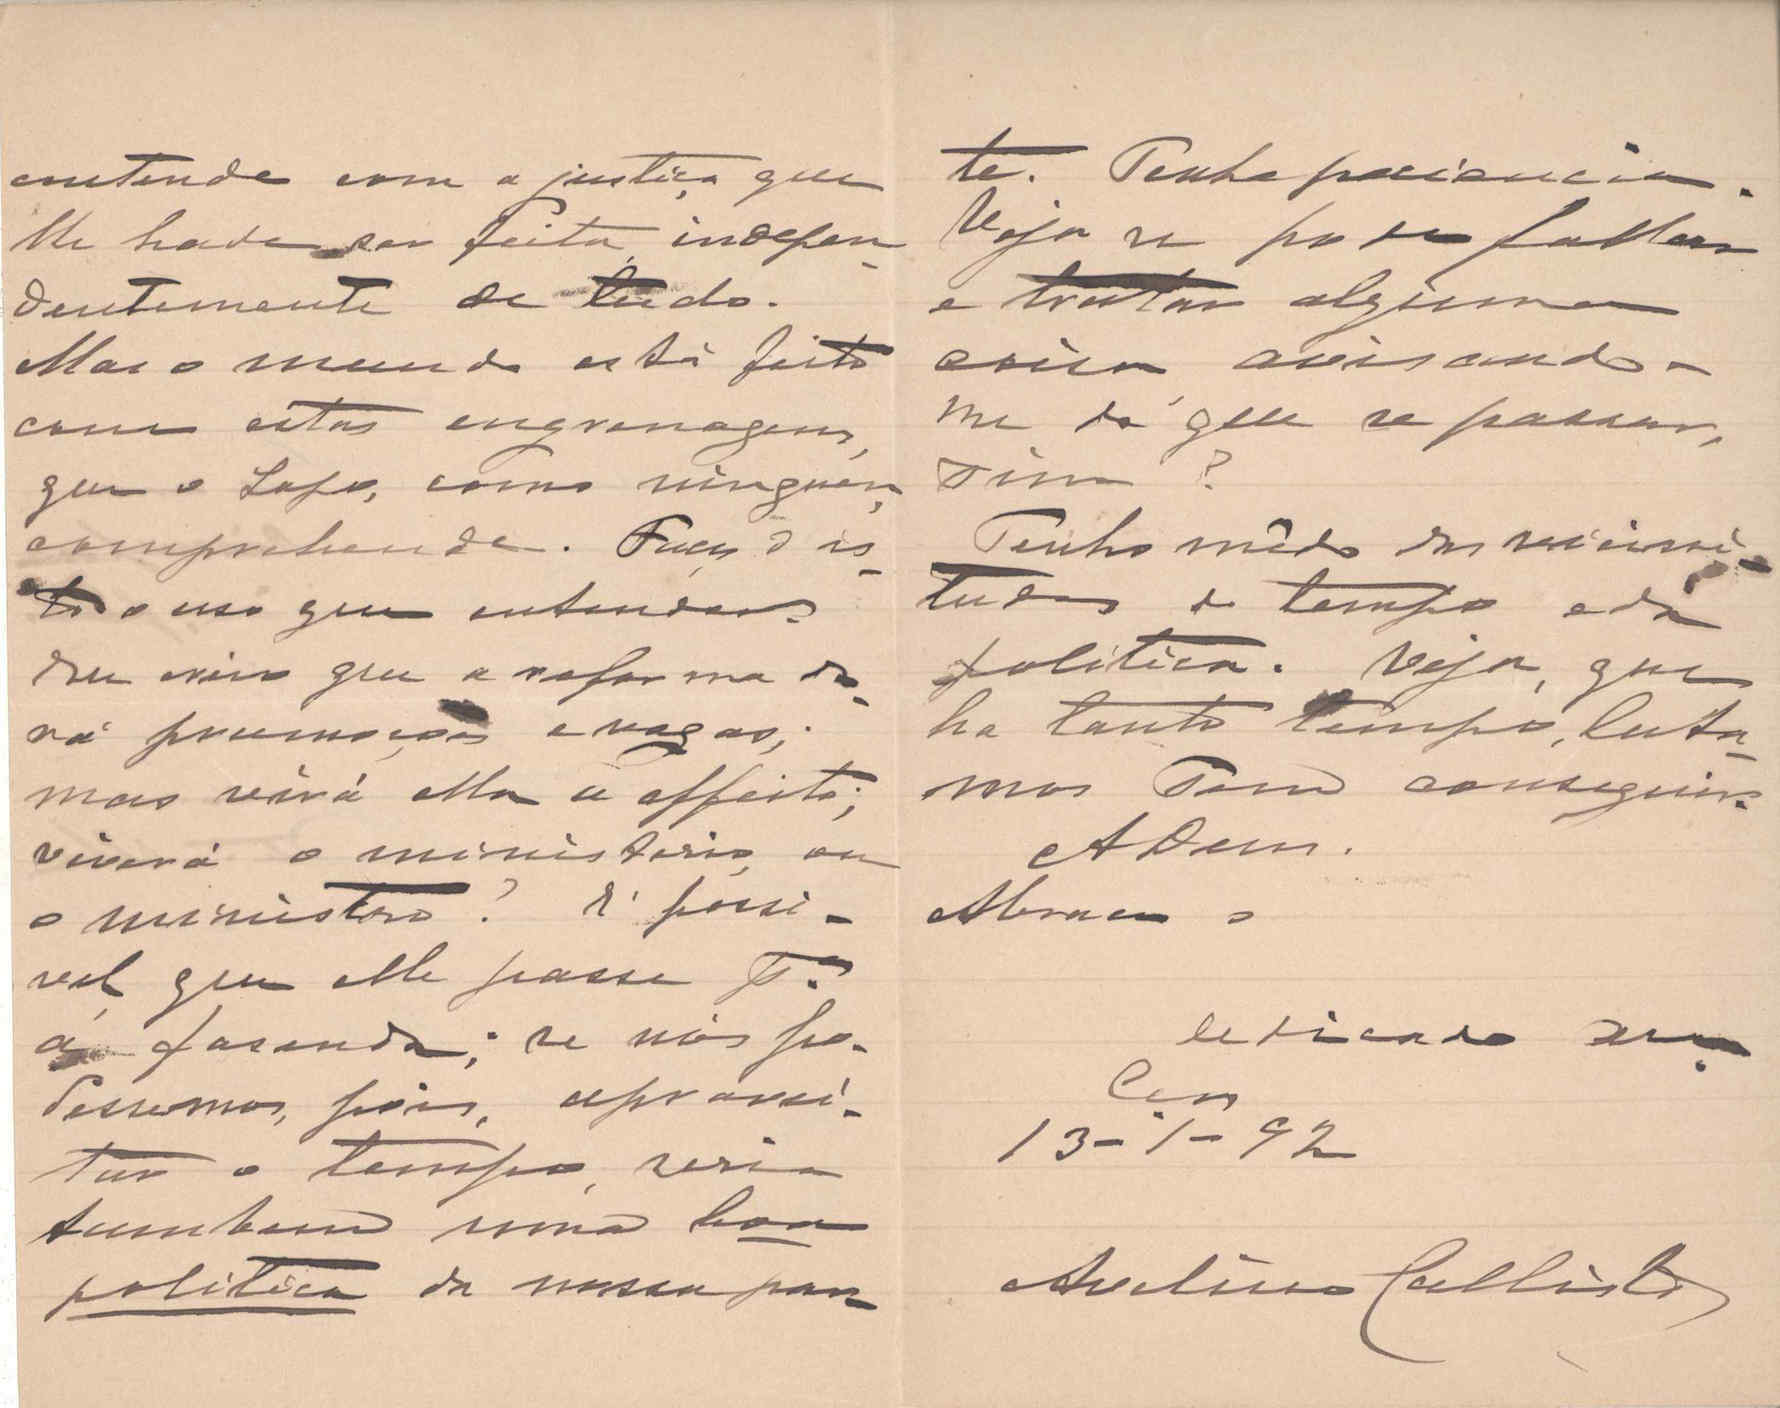 contende com a justiça que
lhe hade ser feita indepen-
dentemente de tudo.
Mas o mundo está feito
com estas engrenagens,
que o Lopo, como ninguem,
comprehende. Faça d'is-
to o uso que entender.
Eu creio que a reforma da-
rá promoções e vagas;
mas virá ella a effeito;
viverá o ministerio, ou
o ministro? É possi-
vel que elle passe p.ª
a fasenda; se nós po-
dessemos, pois, aprovei-
tar o tempo, seria
tambem uma boa
politica da nossa par-
te. Tenha paciencia.
Veja se pode fallar
e tratar alguma
coisa, avisando-
me do que se passar,
sim?
Tenho mêdo das vicissi-
tudes do tempo e da
politica. Veja, que
ha tanto tempo, luta-
mos sem conseguir.
Adeus.
Abraça o
dedicado
C.
13-1-92
Avelino Callisto